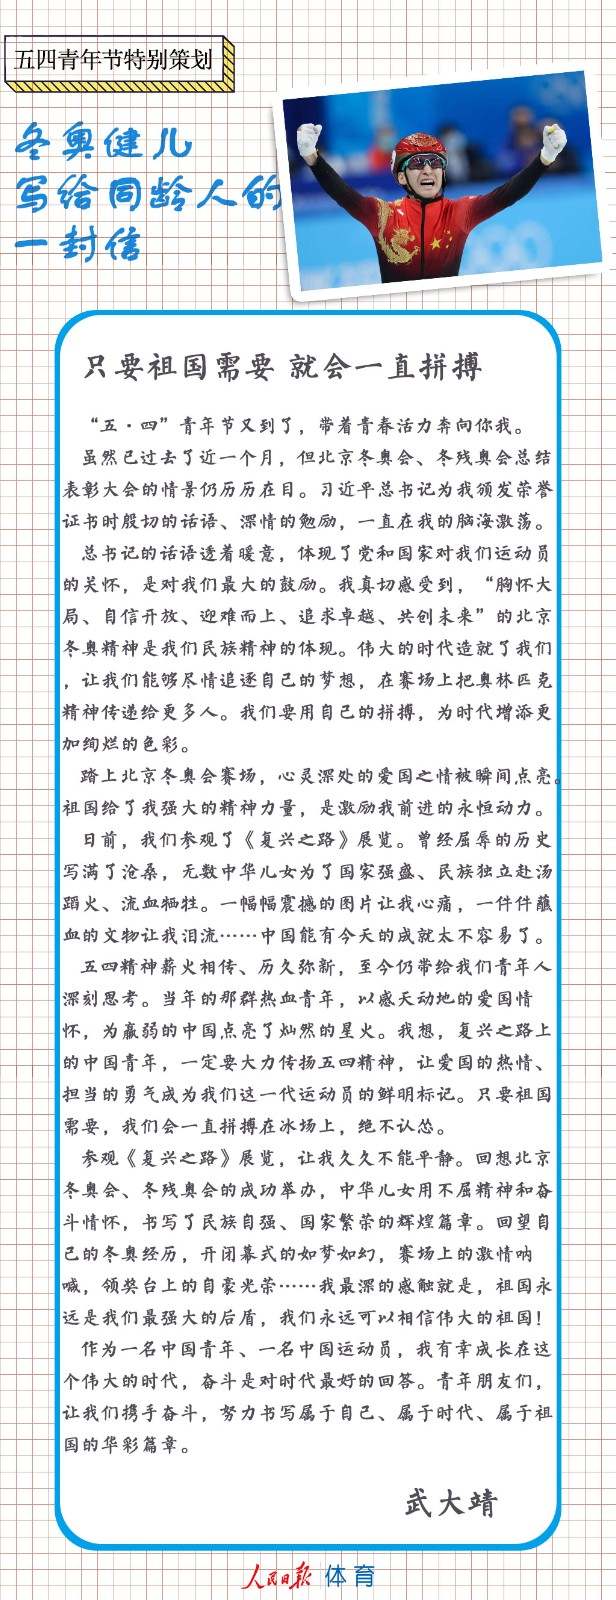 五四青年节特别策划
冬奥健儿
写给同龄人的
一封信
只要祖国需要 就会一直拼搏
“五·四”青年节又到了，带着青春活力奔向你我。
虽然已过去了近一个月，但北京冬奥会、冬残奥会总结
表彰大会的情景仍历历在目。习近平总书记为我颁发荣誉
证书时殷切的话语、深情的勉励，一直在我的脑海激荡。
总书记的话语透着暖意，体现了党和国家对我们运动员
的关怀，是对我们最大的鼓励。我真切感受到，“胸怀大
局、自信开放、迎难而上、追求卓越、共创未来”的北京
冬奥精神是我们民族精神的体现。伟大的时代造就了我们
，让我们能够尽情追逐自己的梦想，在赛场上把奥林匹克
精神传递给更多人。我们要用自己的拼搏，为时代增添更
加绚烂的色彩。
踏上北京冬奥会赛场，心灵深处的爱国之情被瞬间点亮。
祖国给了我强大的精神力量，是激励我前进的永恒动力。
日前，我们参观了《复兴之路》展览。曾经屈辱的历史
写满了沧桑，无数中华儿女为了国家强盛、民族独立赴汤
蹈火、流血牺牲。一幅幅震撼的图片让我心痛，一件件蘸
血的文物让我泪流……中国能有今天的成就太不容易了。
五四精神薪火相传、历久弥新，至今仍带给我们青年人
深刻思考。当年的那群热血青年，以感天动地的爱国情
怀，为羸弱的中国点亮了灿然的星火。我想，复兴之路上
的中国青年，一定要大力传扬五四精神，让爱国的热情、
担当的勇气成为我们这一代运动员的鲜明标记。只要祖国
需要，我们会一直拼搏在冰场上，绝不认怂。
参观《复兴之路》展览，让我久久不能平静。回想北京
冬奥会、冬残奥会的成功举办，中华儿女用不屈精神和奋
斗情怀，书写了民族自强、国家繁荣的辉煌篇章。回望自
己的冬奥经历，开闭幕式的如梦如幻，赛场上的激情呐
喊，领奖台上的自豪光荣……我最深的感触就是，祖国永
远是我们最强大的后盾，我们永远可以相信伟大的祖国！
作为一名中国青年、一名中国运动员，我有幸成长在这
个伟大的时代，奋斗是对时代最好的回答。青年朋友们，
让我们携手奋斗，努力书写属于自己、属于时代、属于祖
国的华彩篇章。
武大靖
人民日报 体育